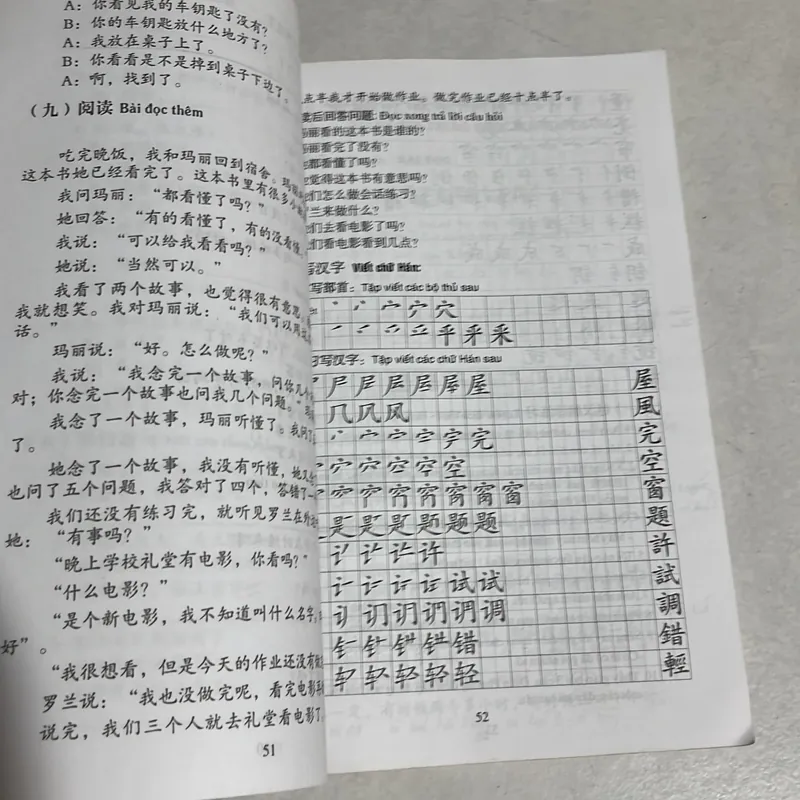 A：你看见我的车钥匙了没有？
B：你的车钥匙放什么地方了？
A：我放在桌子上了。
B：你看看是不是掉到桌子下边了。
A：啊，找到了。
（九）阅读 Bài đọc thêm
吃完晚饭，我和玛丽回到宿舍。玛
这本书她已经看完了。这本书里有很多
我问玛丽：“都看懂了吗？”
她回答：“有的看懂了，有的没看懂
我说：“可以给我看看吗？”
她说：“当然可以。”
我看了两个故事，也觉得很有意思
我就想笑。我对玛丽说：“我们可以用
话。”
玛丽说：“好。怎么做呢？”
我说：“我念完一个故事，问你几个
对；你念完一个故事也问我几个问题。”
我念了一个故事，玛丽听懂了。我问了
了。
她念了一个故事，我没有听懂，她又
也问了五个问题，我答对了四个，答错了一
我们还没有练习完，就听见罗兰在
她：“有事吗？”
“晚上学校礼堂有电影，你看吗？”
“什么电影？”
“是个新电影，我不知道叫什么名字，
好”。
“我很想看，但是今天的作业还没有做
罗兰说：“我也没做完呢，看完电影
说完，我们三个人就去礼堂看电影了
51
点半我才开始做作业。做完作业已经十点半了。
读后回答问题：Đọc xong trả lời câu hỏi
玛丽看的这本书是谁的？
玛丽看完了没有？
都看懂了吗？
觉得这本书有意思吗？
们怎么做会话练习？
兰来做什么？
们去看电影了吗？
们看电影看到几点？
写汉字 Viết chữ Hán:
写部首：Tập viết các bộ thủ sau
丶 宀 穴
平 釆
习写汉字：Tập viết các chữ Hán sau
尸 屋 屋
几 风 風
宀 完 完
穴 空 空
窗 窗
是 题 題
讠 许 許
讠 试 試
讠 调 調
钅 错 錯
车 轻 輕
52